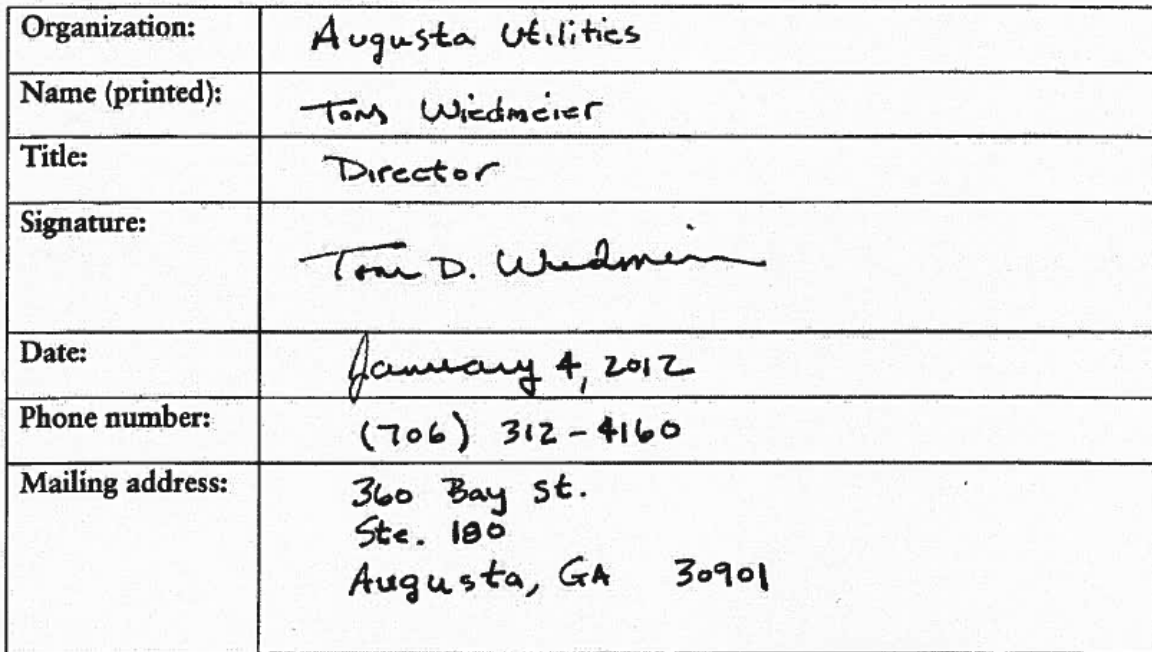 Organization: Augusta Utilities
Name (printed): Tom Wiedmeier
Title: Director
Signature: Tom D. Wiedmeier
Date: January 4, 2012
Phone number: (706) 312-4160
Mailing address: 360 Bay St.
Ste. 180
Augusta, GA 30901